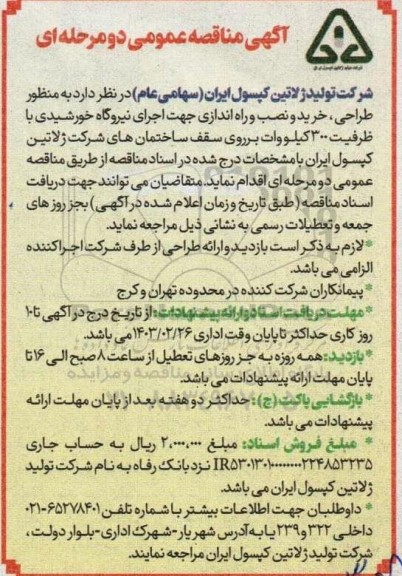 آگهی مناقصه عمومی دو مرحله ای
شرکت تولید ژلاتین کپسول ایران (سهامی عام) در نظر دارد به منظور
طراحی ، خرید و نصب و راه اندازی جهت اجرای نیروگاه خورشیدی با
ظرفیت ۳۰۰ کیلو وات بر روی سقف ساختمان های شرکت ژلاتین
کپسول ایران با مشخصات درج شده در اسناد مناقصه از طریق مناقصه
عمومی دو مرحله ای اقدام نماید. متقاضیان می توانند جهت دریافت
اسناد مناقصه (طبق تاریخ و زمان اعلام شده در آگهی) بجز روز های
جمعه و تعطیلات رسمی به نشانی ذیل مراجعه نماید.
*لازم به ذکر است بازدید و ارائه طراحی از طرف شرکت اجرا کننده
الزامی می باشد.
*پیمانکاران شرکت کننده در محدوده تهران و کرج
*مهلت دریافت اسناد و ارائه پیشنهادات: از تاریخ درج در آگهی تا ۱۰
روز کاری حداکثر تا پایان وقت اداری ۱۴۰۳/۰۲/۲۶ می باشد.
*بازدید: همه روزه به جز روزهای تعطیل از ساعت ۸ صبح الی ۱۶ تا
پایان مهلت ارائه پیشنهادات می باشد.
*بازگشایی پاکت (ج): حداکثر دو هفته بعد از پایان مهلت ارائه
پیشنهادات می باشد.
* مبلغ فروش اسناد: مبلغ ۲,۰۰۰,۰۰۰ ریال به حساب جاری
نزد بانک رفاه به نام شرکت تولید
ژلاتین کپسول ایران می باشد.
* داوطلبان جهت اطلاعات بیشتر با شماره تلفن ۶۵۲۷۸۴۰۱-۰۲۱
داخلی ۳۲۲ و ۲۳۹ یا به آدرس شهریار-شهرک اداری-بلوار دولت ،
شرکت تولید ژلاتین کپسول ایران مراجعه نمایند.